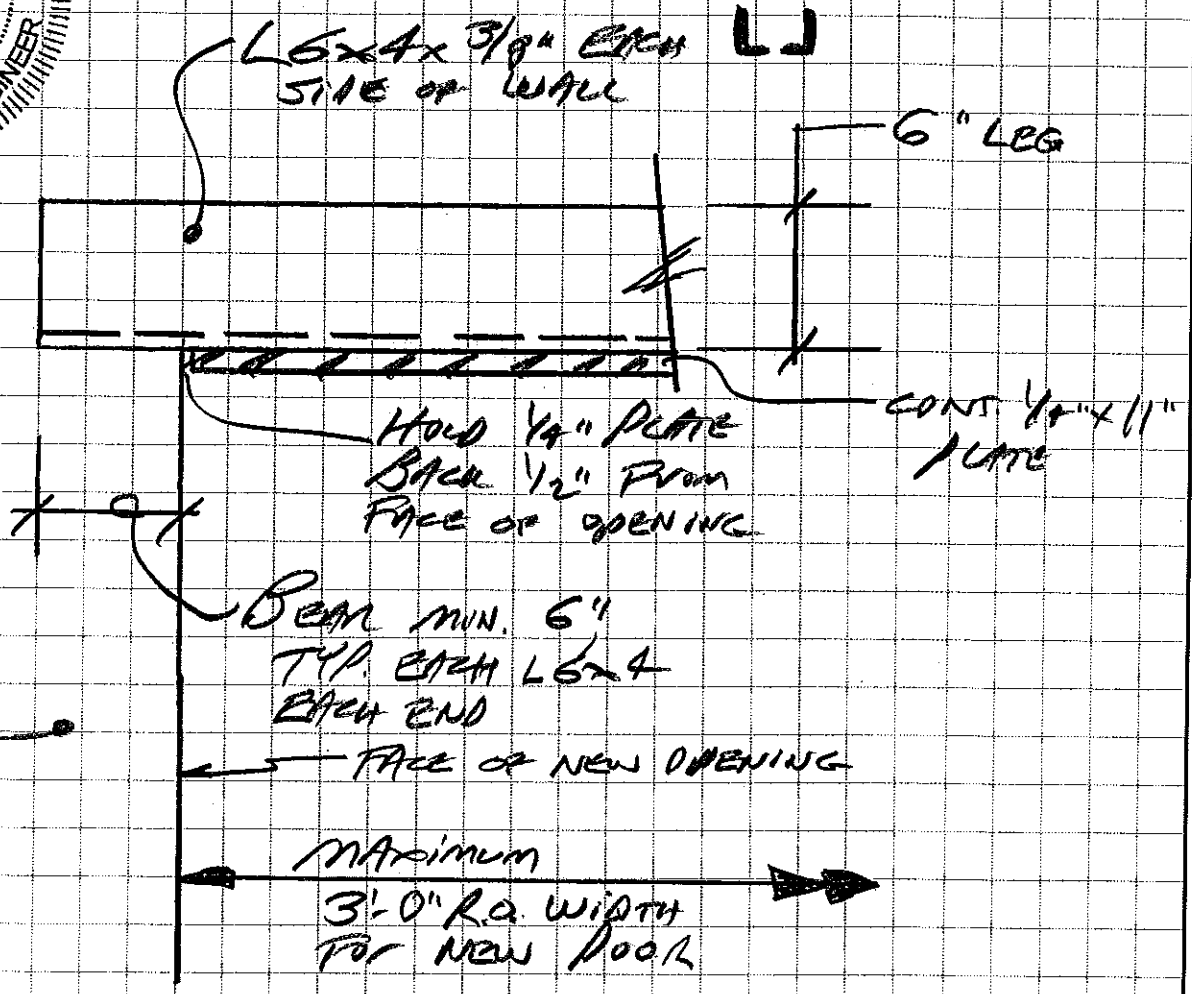 NEER
L6x4x 3/8" EACH
SIDE OF WALL
6" LEG
HOLD 1/4" PLATE
BACK 1/2" FROM
FACE OF OPENING
CONT. 1/4"x11"
PLATE
BEAR MIN. 6"
TYP. EACH L6x4
EACH END
FACE OF NEW OPENING
MAXIMUM
3'-0" R.O. WIDTH
FOR NEW DOOR